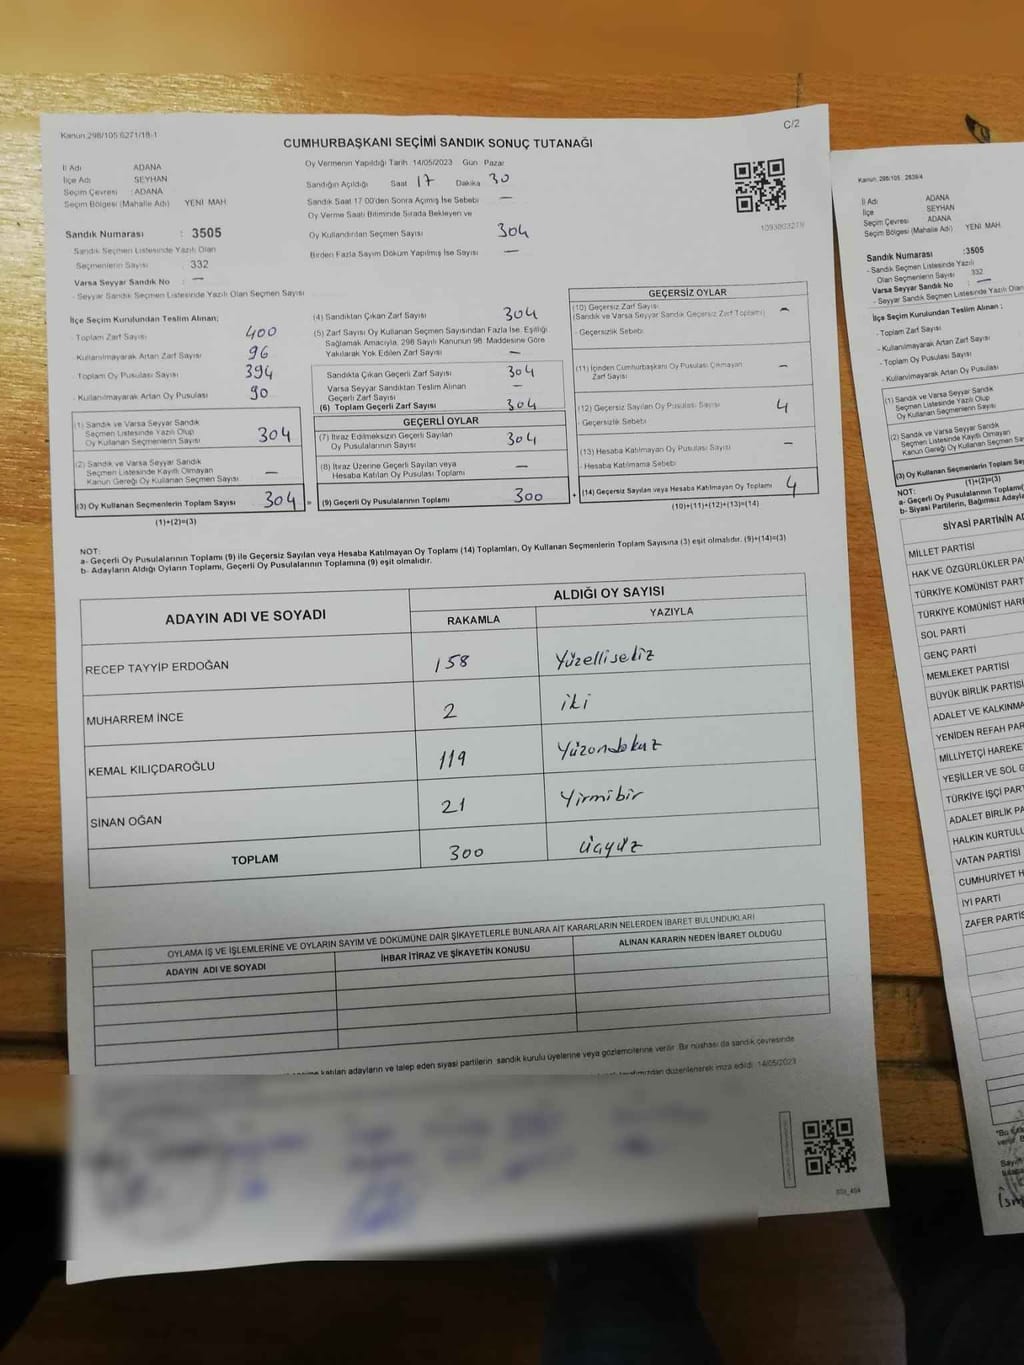 Kanun:298/105:6271/18-1
C/2
CUMHURBAŞKANI SEÇİMİ SANDIK SONUÇ TUTANAĞI
İl Adı ADANA
İlçe Adı SEYHAN
Seçim Çevresi : ADANA
Seçim Bölgesi (Mahalle Adı) YENİ MAH
Sandık Numarası : 3505
Sandık Seçmen Listesinde Yazılı Olan
Seçmenlerin Sayısı : 332
Varsa Seyyar Sandık No : —
- Seyyar Sandık Seçmen Listesinde Yazılı Olan Seçmen Sayısı
Oy Vermenin Yapıldığı Tarih 14/05/2023 Gün Pazar
Sandığın Açıldığı Saat 17 Dakika 30
Sandık Saat 17 00'den Sonra Açılmış İse Sebebi —
Oy Verme Saati Bitiminde Sırada Bekleyen ve
Oy Kullandırılan Seçmen Sayısı 304
Birden Fazla Sayım Döküm Yapılmış İse Sayısı —
1093803219
İlçe Seçim Kurulundan Teslim Alınan;
- Toplam Zarf Sayısı 400
- Kullanılmayarak Artan Zarf Sayısı 96
- Toplam Oy Pusulası Sayısı 394
- Kullanılmayarak Artan Oy Pusulası 90
(1) Sandık ve Varsa Seyyar Sandık
Seçmen Listesinde Yazılı Olup
Oy Kullanan Seçmenlerin Sayısı 304
(2) Sandık ve Varsa Seyyar Sandık
Seçmen Listesinde Kayıtlı Olmayan
Kanun Gereği Oy Kullanan Seçmen Sayısı —
(3) Oy Kullanan Seçmenlerin Toplam Sayısı 304 =
(1)+(2)=(3)
(4) Sandıktan Çıkan Zarf Sayısı 304
(5) Zarf Sayısı Oy Kullanan Seçmen Sayısından Fazla İse, Eşitliği
Sağlamak Amacıyla, 298 Sayılı Kanunun 98. Maddesine Göre
Yakılarak Yok Edilen Zarf Sayısı —
Sandıkta Çıkan Geçerli Zarf Sayısı 304
Varsa Seyyar Sandıktan Teslim Alınan
Geçerli Zarf Sayısı —
(6) Toplam Geçerli Zarf Sayısı 304
GEÇERLİ OYLAR
(7) İtiraz Edilmeksizin Geçerli Sayılan
Oy Pusulalarının Sayısı 304
(8) İtiraz Üzerine Geçerli Sayılan veya
Hesaba Katılan Oy Pusulası Toplamı —
(9) Geçerli Oy Pusulalarının Toplamı 300 +
GEÇERSİZ OYLAR
(10) Geçersiz Zarf Sayısı
(Sandık ve Varsa Seyyar Sandık Geçersiz Zarf Toplamı) —
- Geçersizlik Sebebi
(11) İçinden Cumhurbaşkanı Oy Pusulası Çıkmayan
Zarf Sayısı —
(12) Geçersiz Sayılan Oy Pusulası Sayısı 4
- Geçersizlik Sebebi
(13) Hesaba Katılmayan Oy Pusulası Sayısı —
- Hesaba Katılmama Sebebi
(14) Geçersiz Sayılan veya Hesaba Katılmayan Oy Toplamı 4
(10)+(11)+(12)+(13)=(14)
NOT:
a- Geçerli Oy Pusulalarının Toplamı (9) ile Geçersiz Sayılan veya Hesaba Katılmayan Oy Toplamı (14) Toplamları, Oy Kullanan Seçmenlerin Toplam Sayısına (3) eşit olmalıdır. (9)+(14)=(3)
b- Adayların Aldığı Oyların Toplamı, Geçerli Oy Pusulalarının Toplamına (9) eşit olmalıdır.
ADAYIN ADI VE SOYADI
ALDIĞI OY SAYISI
RAKAMLA YAZIYLA
RECEP TAYYİP ERDOĞAN 158 Yüzellisekiz
MUHARREM İNCE 2 iki
KEMAL KILIÇDAROĞLU 119 Yüzondokuz
SİNAN OĞAN 21 Yirmibir
TOPLAM 300 üçyüz
OYLAMA İŞ VE İŞLEMLERİNE VE OYLARIN SAYIM VE DÖKÜMÜNE DAİR ŞİKAYETLERLE BUNLARA AİT KARARLARIN NELERDEN İBARET BULUNDUKLARI
ADAYIN ADI VE SOYADI İHBAR İTİRAZ VE ŞİKAYETİN KONUSU ALINAN KARARIN NEDEN İBARET OLDUĞU
katılan adayların ve talep eden siyasi partilerin sandık kurulu üyelerine veya gözlemcilerine verilir. Bir nüshası da sandık çevresinde
düzenlenerek imza edildi. 14/05/2023
Kanun: 298/105 : 2839/4
İl Adı ADANA
İlçe SEYHAN
Seçim Çevresi ADANA
Seçim Bölgesi (Mahalle Adı) YENİ MAH
Sandık Numarası :3505
- Sandık Seçmen Listesinde Yazılı
Olan Seçmenlerin Sayısı 332
Varsa Seyyar Sandık No : —
- Seyyar Sandık Seçmen Listesinde Yazılı Olan
İlçe Seçim Kurulundan Teslim Alınan ;
- Toplam Zarf Sayısı
- Kullanılmayarak Artan Zarf Sayısı
- Toplam Oy Pusulası Sayısı
- Kullanılmayarak Artan Oy Pusulası
(1) Sandık ve Varsa Seyyar Sandık
Seçmen Listesinde Yazılı Olup
Oy Kullanan Seçmenlerin Sayısı
(2) Sandık ve Varsa Seyyar Sandık
Seçmen Listesinde Kayıtlı Olmayan
Kanun Gereği Oy Kullanan Seçmen
(3) Oy Kullanan Seçmenlerin Toplam
(1)+(2)=(3)
NOT:
a- Geçerli Oy Pusulalarının Toplamı
b- Siyasi Partilerin, Bağımsız
SİYASİ PARTİNİN
MİLLET PARTİSİ
HAK VE ÖZGÜRLÜKLER
TÜRKİYE KOMÜNİST
TÜRKİYE KOMÜNİST
SOL PARTİ
GENÇ PARTİ
MEMLEKET PARTİSİ
BÜYÜK BİRLİK PARTİSİ
ADALET VE KALKINMA
YENİDEN REFAH
MİLLİYETÇİ HAREKET
YEŞİLLER VE SOL
TÜRKİYE İŞÇİ
ADALET BİRLİK
HALKIN KURTULUŞ
VATAN PARTİSİ
CUMHURİYET
İYİ PARTİ
ZAFER PARTİSİ